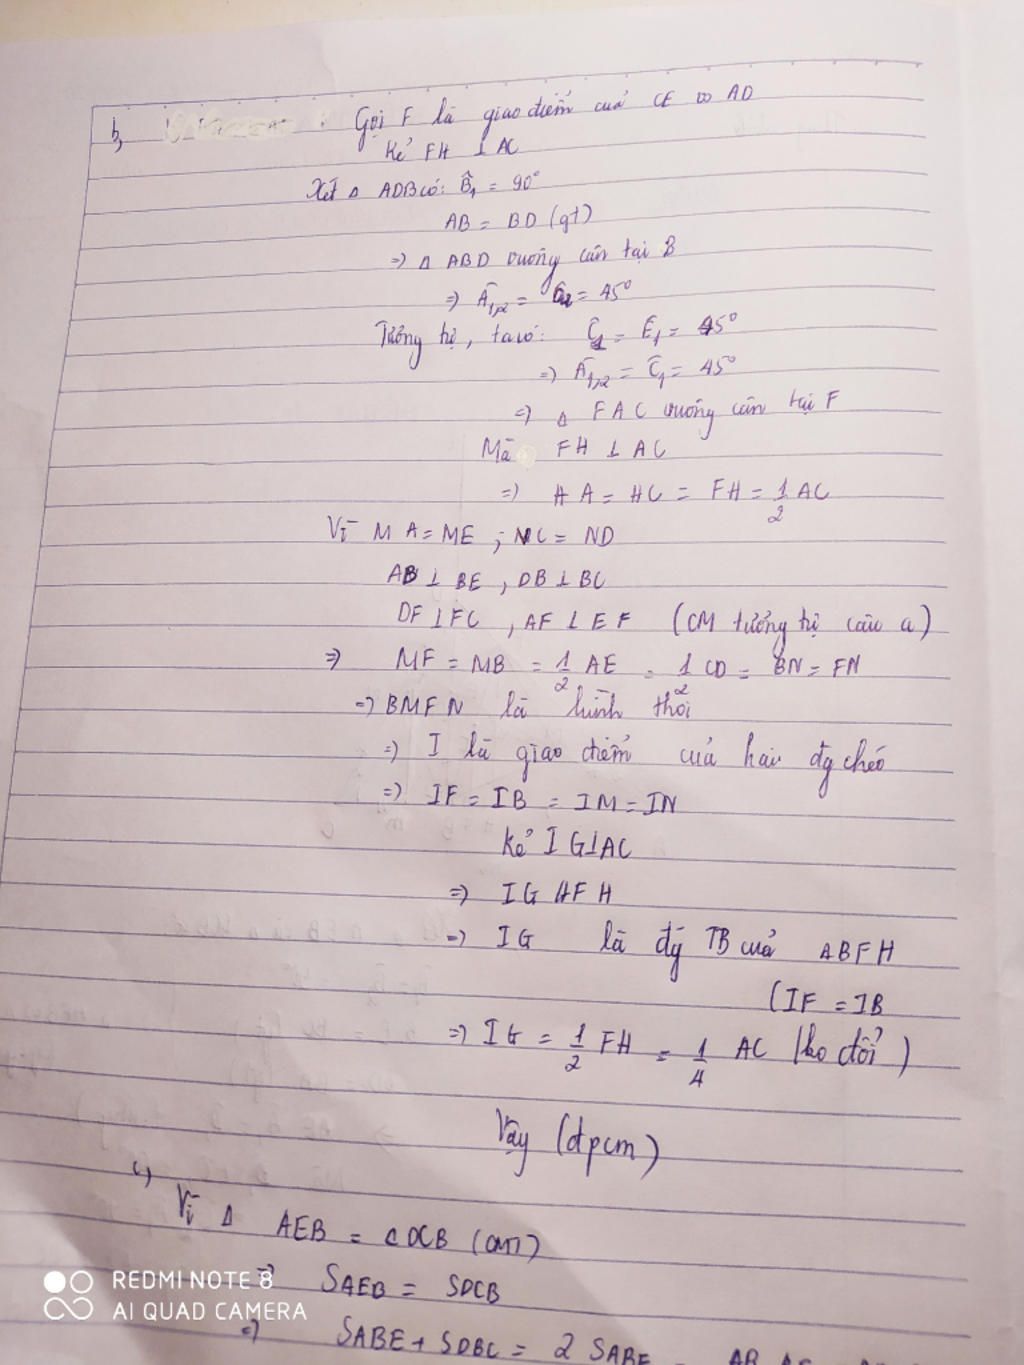 b, Gọi F là giao điểm của CE và AD
Kẻ FH ⊥ AC
Xét Δ ADB có: B̂₁ = 90°
AB = BD (gt)
=> Δ ABD vuông cân tại B
=> Â₁,₂ = = 45°
Tương tự, ta có: Ĉ₁ = Ê₁ = 45°
=> Â₁,₂ = Ĉ₁ = 45°
=> Δ FAC vuông cân tại F
Mà FH ⊥ AC
=> HA = HC = FH = 1/2 AC
Vì MA = ME ; NC = ND
AB ⊥ BE , DB ⊥ BC
DF ⊥ FC , AF ⊥ EF (CM tương tự câu a)
=> MF = MB = 1/2 AE = 1/2 CD = BN = FN
=> BMFN là hình thoi
=> I là giao điểm của hai đg chéo
=> IF = IB = IM = IN
Kẻ IG ⊥ AC
=> IG // FH
=> IG là đg TB của ΔBFH
(IF = IB
=> IG = 1/2 FH = 1/4 AC (ko đổi)
Vậy (đpcm)
c, Vì Δ AEB = ΔDCB (cmt)
=> SAEB = SDCB
=> SABE + SDBC = 2 SABE =
REDMI NOTE 8
AI QUAD CAMERA